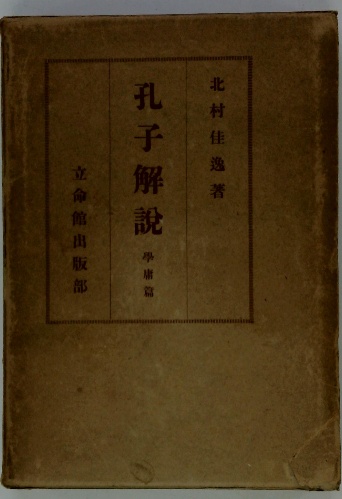 北村佳逸著
孔子解說 學庸篇
立命館出版部